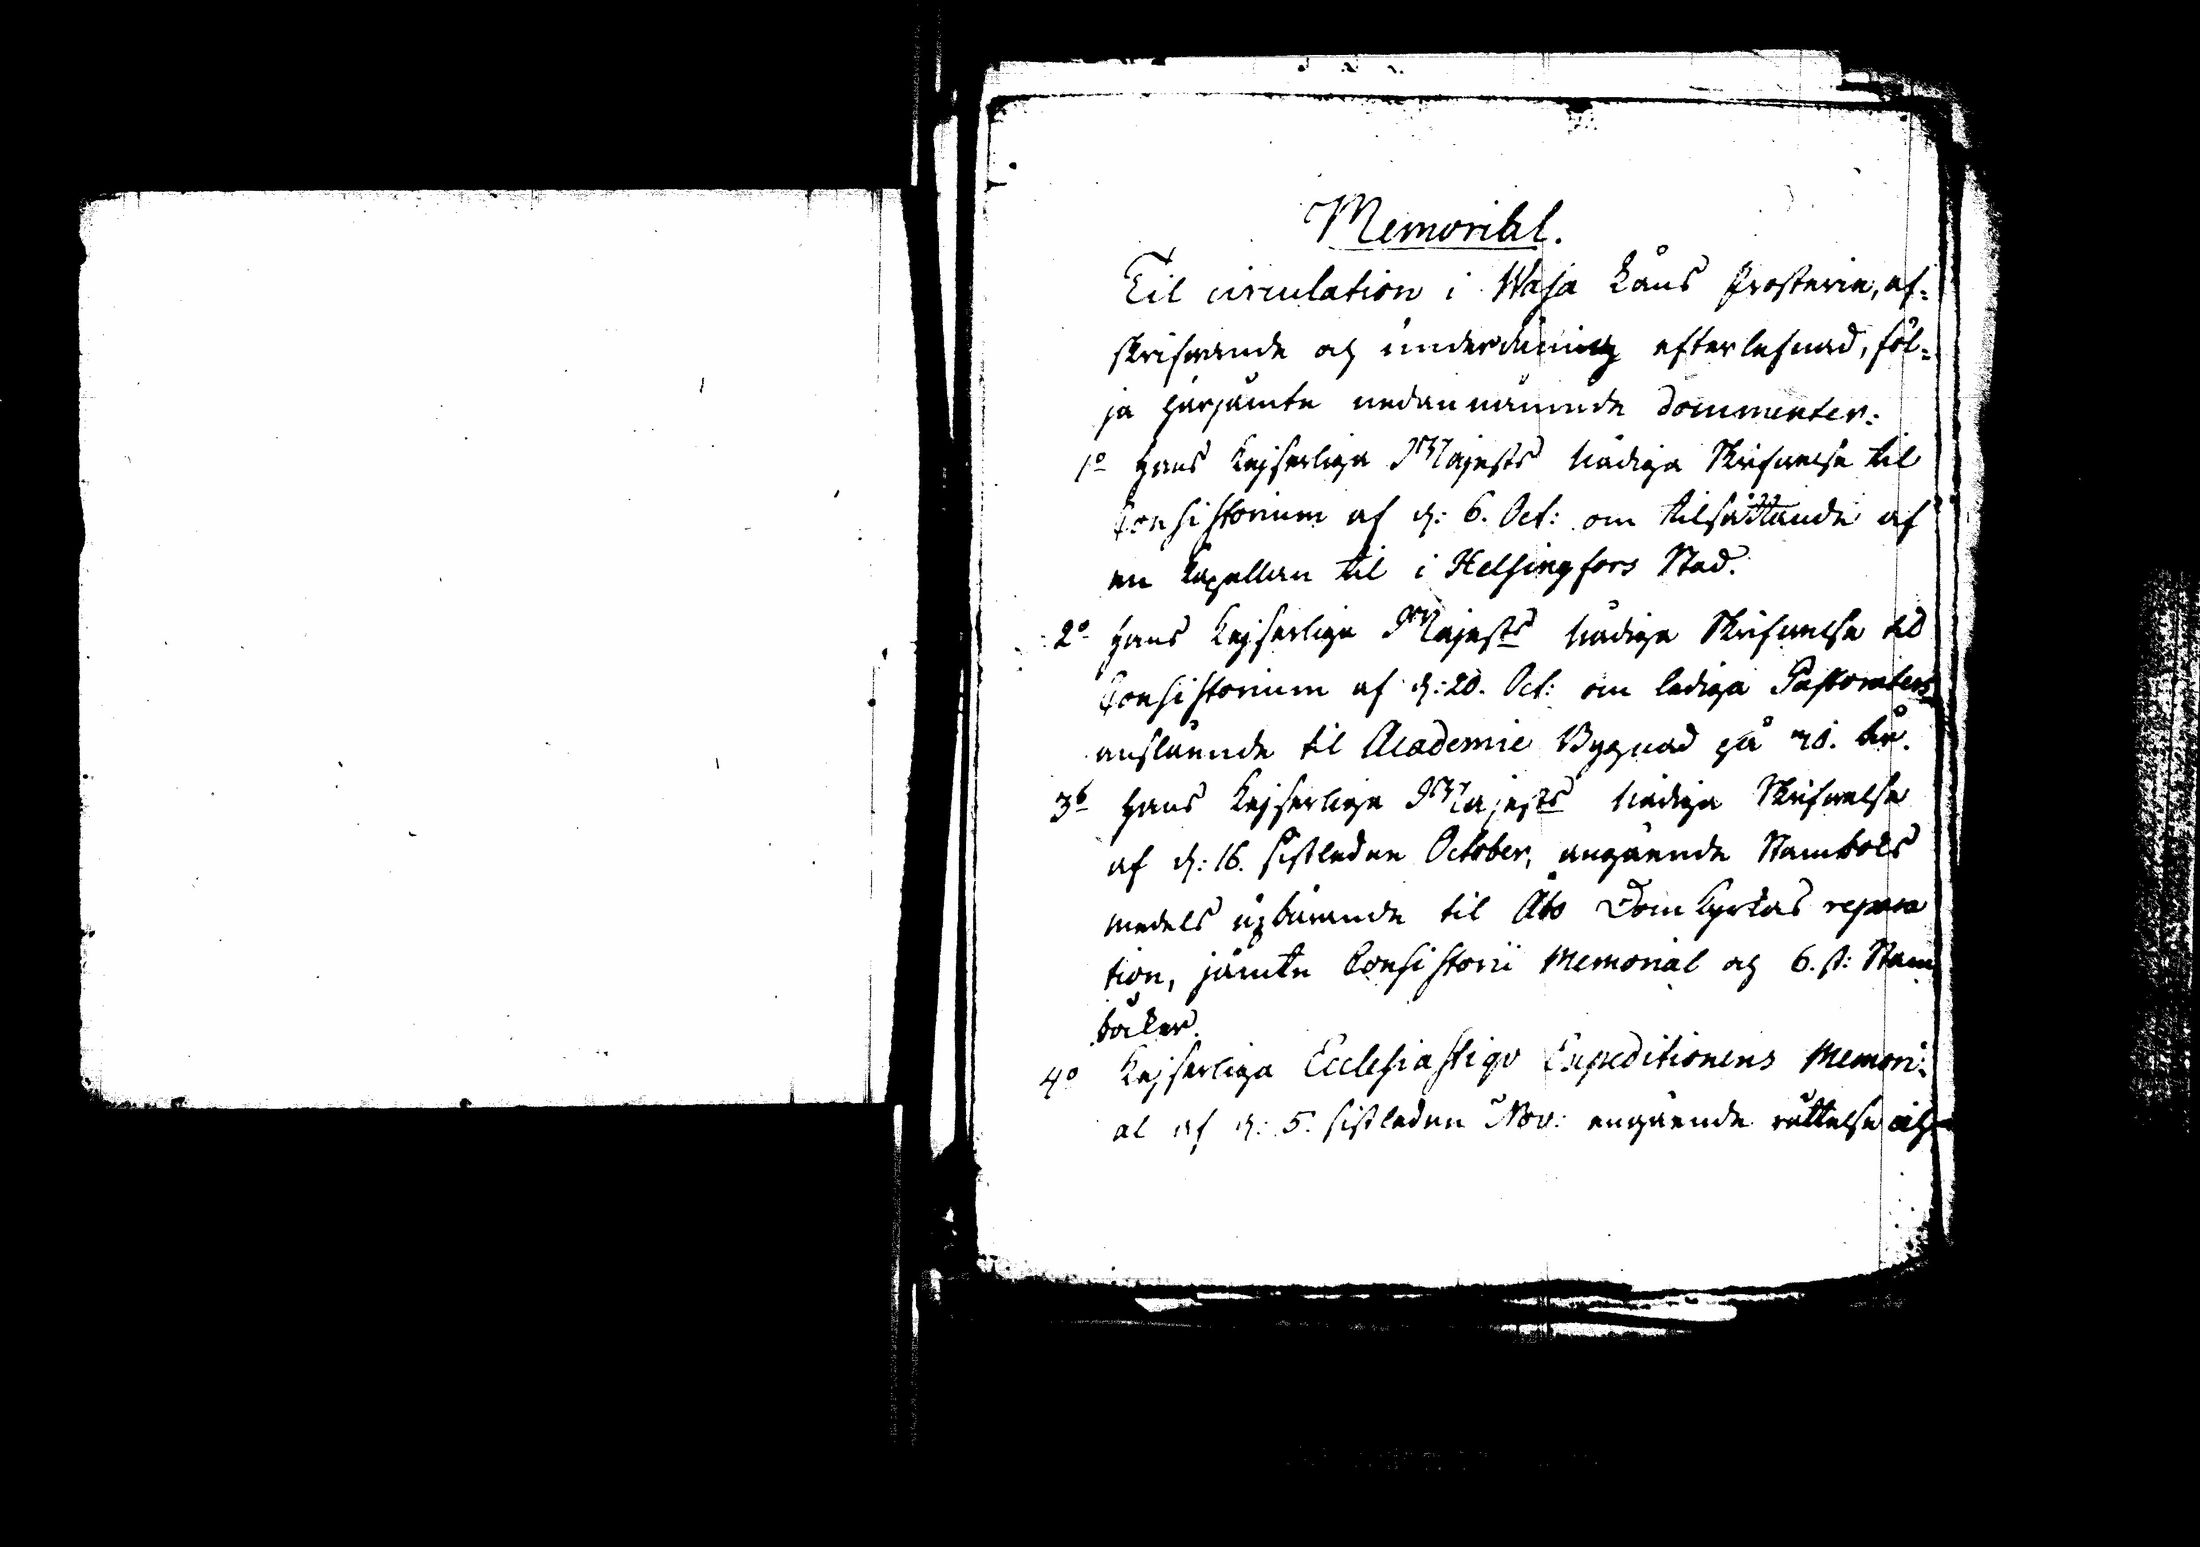 Memorial.
Til circulation i Wasa Läns Prosterie, af-
skrifwande och underdånig efterlefnad, föl-
ja härjämte nedannämnde documenter:
1o Hans Kejserliga Majests Nådiga Skrifwelse til
Consistorium af d: 6. Oct: om tilsättande af
en Capellan til i Helsingfors Stad.
2o Hans Kejserliga Majests Nådiga Skrifwelse til
Consistorium af d: 20. Oct: om lediga Pastoraters
anslående til Academie Bygnad på år.
3o Hans Kejserliga Majests Nådiga Skrifwelse
af d: 16. sistledne October, angående Stambols
medels upbärande til Åbo DomKyrkas repara
tion, jämte Consistorii Memorial och 6. st: Stam
böcker.
4o Kejserliga Ecclesiastique Expeditionens Memori-
al af d: 5. sistleden Nov: angående rättelse